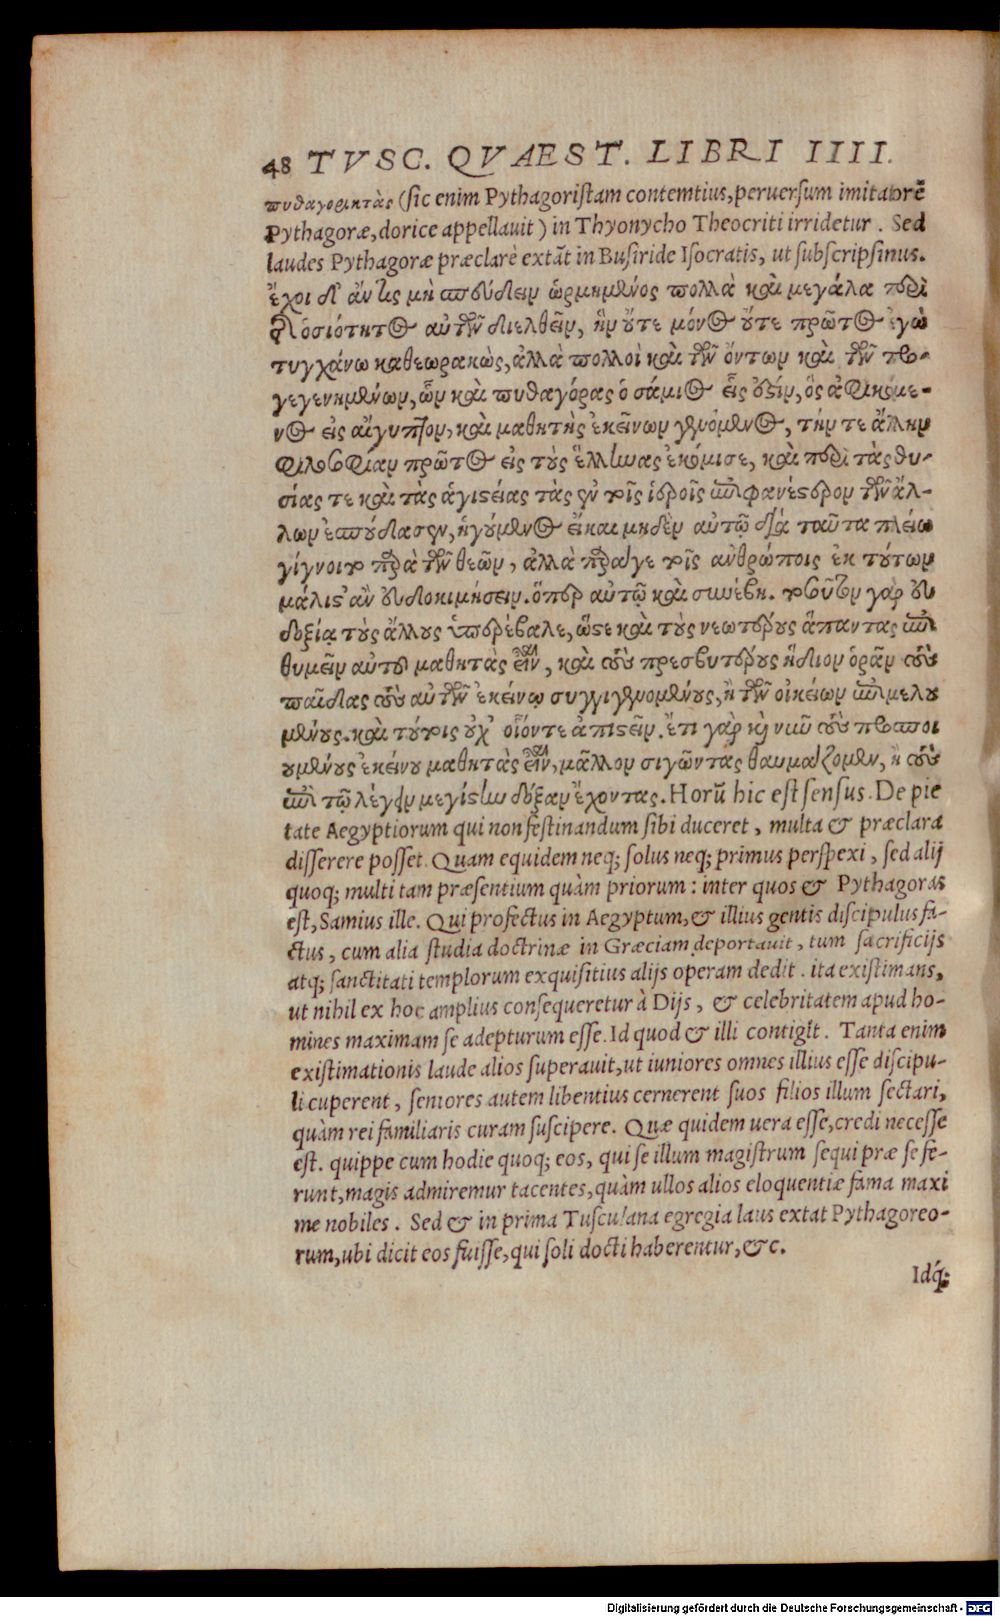 48 TVSC. QVAEST. LIBRI IIII.
πυθαγορικτὰς (sic enim Pythagoristam contemtius, peruersum imitatorẽ
Pythagoræ, dorice appellauit) in Thyonycho Theocriti irridetur. Sed
laudes Pythagoræ præclarè extãt in Busiride Isocratis, ut subscripsimus.
ἔχοι δ' ἄν τις μὴ σπεύδειν ὡρμημένος πολλὰ καὶ μεγάλα περὶ
ὁσιότητος αὐτῶν διελθεῖν, ἣν οὔτε μόνος οὔτε πρῶτος ἐγὼ
τυγχάνω καθεωρακὼς, ἀλλὰ πολλοὶ καὶ τῶν ὄντων καὶ τῶν προ-
γεγενημένων, ὧν καὶ πυθαγόρας ὁ σάμιος εἷς ὀξίν, ὃς ἀφικόμε-
νος εἰς αἴγυπτον, καὶ μαθητὴς ἐκείνων γενόμενος, τήν τε ἄλλην
φιλοσοφίαν πρῶτος εἰς τοὺς ἕλληνας ἐκόμισε, καὶ περὶ τὰς θυ-
σίας τε καὶ τὰς ἁγιστείας τὰς ἐν τοῖς ἱεροῖς ἐπιφανέστερον τῶν ἄλ-
λων ἐσπούδασεν, ἡγούμενος εἴ και μηδὲν αὐτῷ διὰ ταῦτα πλέιω
γίγνοιτο παρὰ τῶν θεῶν, ἀλλὰ παρά γε τοῖς ἀνθρώποις ἐκ τούτων
μάλιστ' ἂν εὐδοκιμήσειν. ὅπερ αὐτῷ καὶ συνέβη. τοσοῦτον γὰρ εὐ
δοξίᾳ τοὺς ἄλλους ὑπερέβαλε, ὥστε καὶ τοὺς νεωτέρους ἅπαντας ἐπι
θυμεῖν αὐτοῦ μαθητὰς εἶναι, καὶ τοὺς πρεσβυτέρους ἥδιον ὁρᾶν τοὺς
παῖδας τοὺς αὐτῶν ἐκείνῳ συγγιγνομένους, ἢ τῶν οἰκείων ἐπιμελου
μένους. καὶ τούτοις οὐχ' οἷόντε ἀπιστεῖν. ἔτι γὰρ καὶ νῦν τοὺς προσποι
ουμένους ἐκείνου μαθητὰς εἶναι, μᾶλλον σιγῶντας θαυμάζομεν, ἢ τοὺς
ἐπὶ τῷ λέγειν μεγίστην δόξαν ἔχοντας. Horũ hic est sensus. De pie
tate Aegyptiorum qui non festinandum sibi duceret, multa & præclara
disserere posset. Quam equidem neq; solus neq; primus perspexi, sed alij
quoq; multi tam præsentium quàm priorum: inter quos & Pythagoras
est, Samius ille. Qui profectus in Aegyptum, & illius gentis discipulus fa-
ctus, cum alia studia doctrinæ in Græciam deportauit, tum sacrificijs
atq; sanctitati templorum exquisitius alijs operam dedit. ita existimans,
ut nihil ex hoc amplius consequeretur à Dijs, & celebritatem apud ho-
mines maximam se adepturum esse. Id quod & illi contigit. Tanta enim
existimationis laude alios superauit, ut iuniores omnes illius esse discipu-
li cuperent, seniores autem libentius cernerent suos filios illum sectari,
quàm rei familiaris curam suscipere. Quæ quidem uera esse, credi necesse
est. quippe cum hodie quoq; eos, qui se illum magistrum sequi præ se fe-
runt, magis admiremur tacentes, quàm ullos alios eloquentiæ fama maxi
me nobiles. Sed & in prima Tusculana egregia laus extat Pythagoreo-
rum, ubi dicit eos fuisse, qui soli docti haberentur, &c.
Idq́;
Digitalisierung gefördert durch die Deutsche Forschungsgemeinschaft - DFG